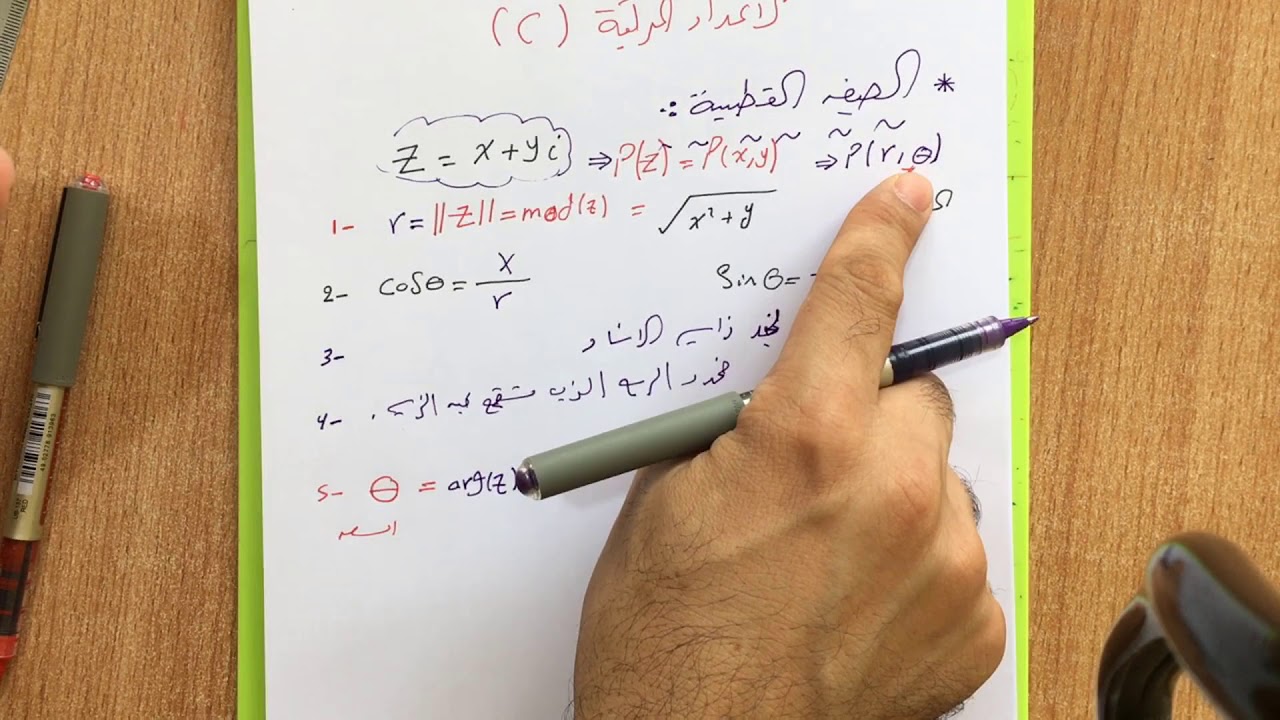 الاعداد المركبة (C)
* الصيغه القطبية :.
Z = x+yi ⇒ P(z) = P(x,y) ⇒ P(r,θ)
1- r = ||Z|| = mod(z) = √x²+y
2- cosθ = x/r Sin θ =
3- نجد زاويه الاسناد
4- نحدد الربع الذي تقع فيه الزاويه .
5- θ = arg(z)
السعه